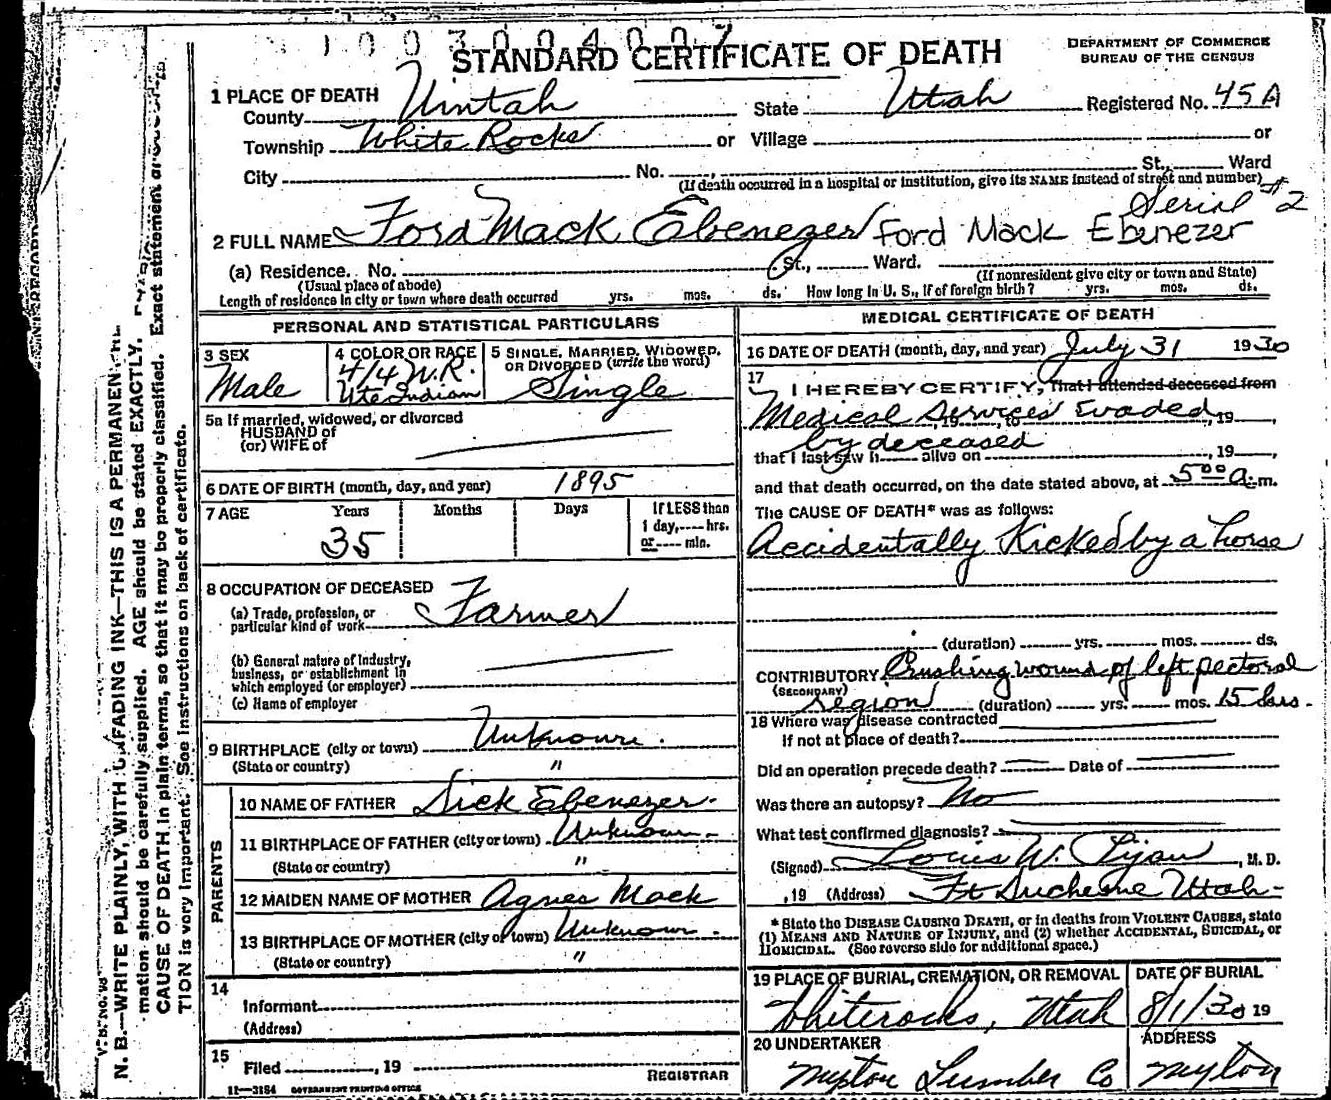 1003004007
STANDARD CERTIFICATE OF DEATH
DEPARTMENT OF COMMERCE
BUREAU OF THE CENSUS
1 PLACE OF DEATH
County Uintah State Utah Registered No. 45A
Township White Rocks or Village or
City No. St., Ward
(If death occurred in a hospital or institution, give its NAME instead of street and number)
Serial #2
2 FULL NAME Ford Mack Ebenezer Ford Mack Ebenezer
(a) Residence. No. St., Ward.
(Usual place of abode) (If nonresident give city or town and State)
Length of residence in city or town where death occurred yrs. mos. ds. How long in U. S., if of foreign birth? yrs. mos. ds.
PERSONAL AND STATISTICAL PARTICULARS
3 SEX
Male
4 COLOR OR RACE
4/4 W.R.
Ute Indian
5 SINGLE, MARRIED, WIDOWED,
OR DIVORCED (write the word)
Single
5a If married, widowed, or divorced
HUSBAND of
(or) WIFE of
6 DATE OF BIRTH (month, day, and year) 1895
7 AGE Years Months Days If LESS than
1 day, hrs.
or min.
35
8 OCCUPATION OF DECEASED
(a) Trade, profession, or
particular kind of work Farmer
(b) General nature of industry,
business, or establishment in
which employed (or employer)
(c) Name of employer
9 BIRTHPLACE (city or town) Unknown.
(State or country) "
PARENTS
10 NAME OF FATHER Dick Ebenezer.
11 BIRTHPLACE OF FATHER (city or town) Unknown
(State or country) "
12 MAIDEN NAME OF MOTHER Agnes Mack
13 BIRTHPLACE OF MOTHER (city or town) Unknown.
(State or country) "
14
Informant
(Address)
15
Filed , 19
REGISTRAR
11—3184 GOVERNMENT PRINTING OFFICE
MEDICAL CERTIFICATE OF DEATH
16 DATE OF DEATH (month, day, and year) July 31 1930
17
I HEREBY CERTIFY, That I attended deceased from
Medical Services Evaded , 19 , to , 19 ,
by deceased
that I last saw h alive on , 19 ,
and that death occurred, on the date stated above, at 5 00 a.m.
The CAUSE OF DEATH* was as follows:
Accidentally Kicked by a horse
(duration) yrs. mos. ds.
CONTRIBUTORY Crushing wound of left pectoral
(SECONDARY)
region (duration) yrs. mos. 15 hrs.
18 Where was disease contracted
If not at place of death?
Did an operation precede death? Date of
Was there an autopsy? No
What test confirmed diagnosis?
(Signed) Louis W. , M. D.
, 19 (Address) Ft Duchesne Utah
* State the DISEASE CAUSING DEATH, or in deaths from VIOLENT CAUSES, state
(1) MEANS AND NATURE OF INJURY, and (2) whether ACCIDENTAL, SUICIDAL, or
HOMICIDAL. (See reverse side for additional space.)
19 PLACE OF BURIAL, CREMATION, OR REMOVAL
Whiterocks, Utah
DATE OF BURIAL
8/1/30 19
20 UNDERTAKER
Myton Lumber Co
ADDRESS
Myton
N. B.—WRITE PLAINLY, WITH UNFADING INK—THIS IS A PERMANENT
mation should be carefully supplied. AGE should be stated EXACTLY.
CAUSE OF DEATH in plain terms, so that it may be properly classified. Exact statement of
TION is very important. See instructions on back of certificate.